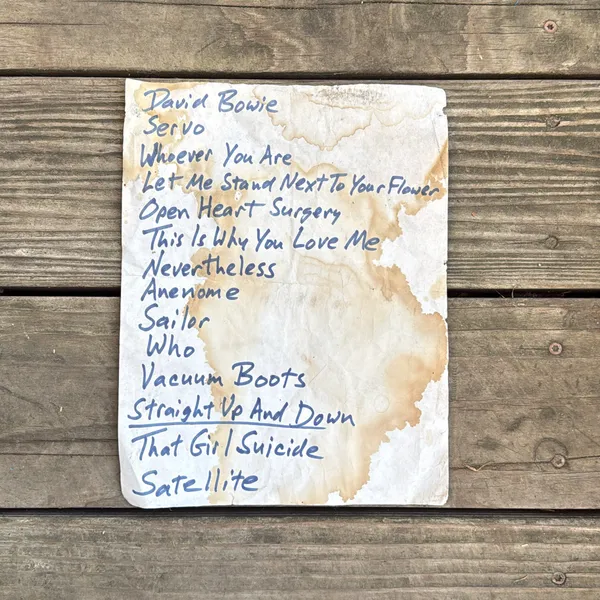 David Bowie
Servo
Whoever You Are
Let Me Stand Next To Your Flower
Open Heart Surgery
This Is Why You Love Me
Nevertheless
Anenome
Sailor
Who
Vacuum Boots
Straight Up And Down
That Girl Suicide
Satellite